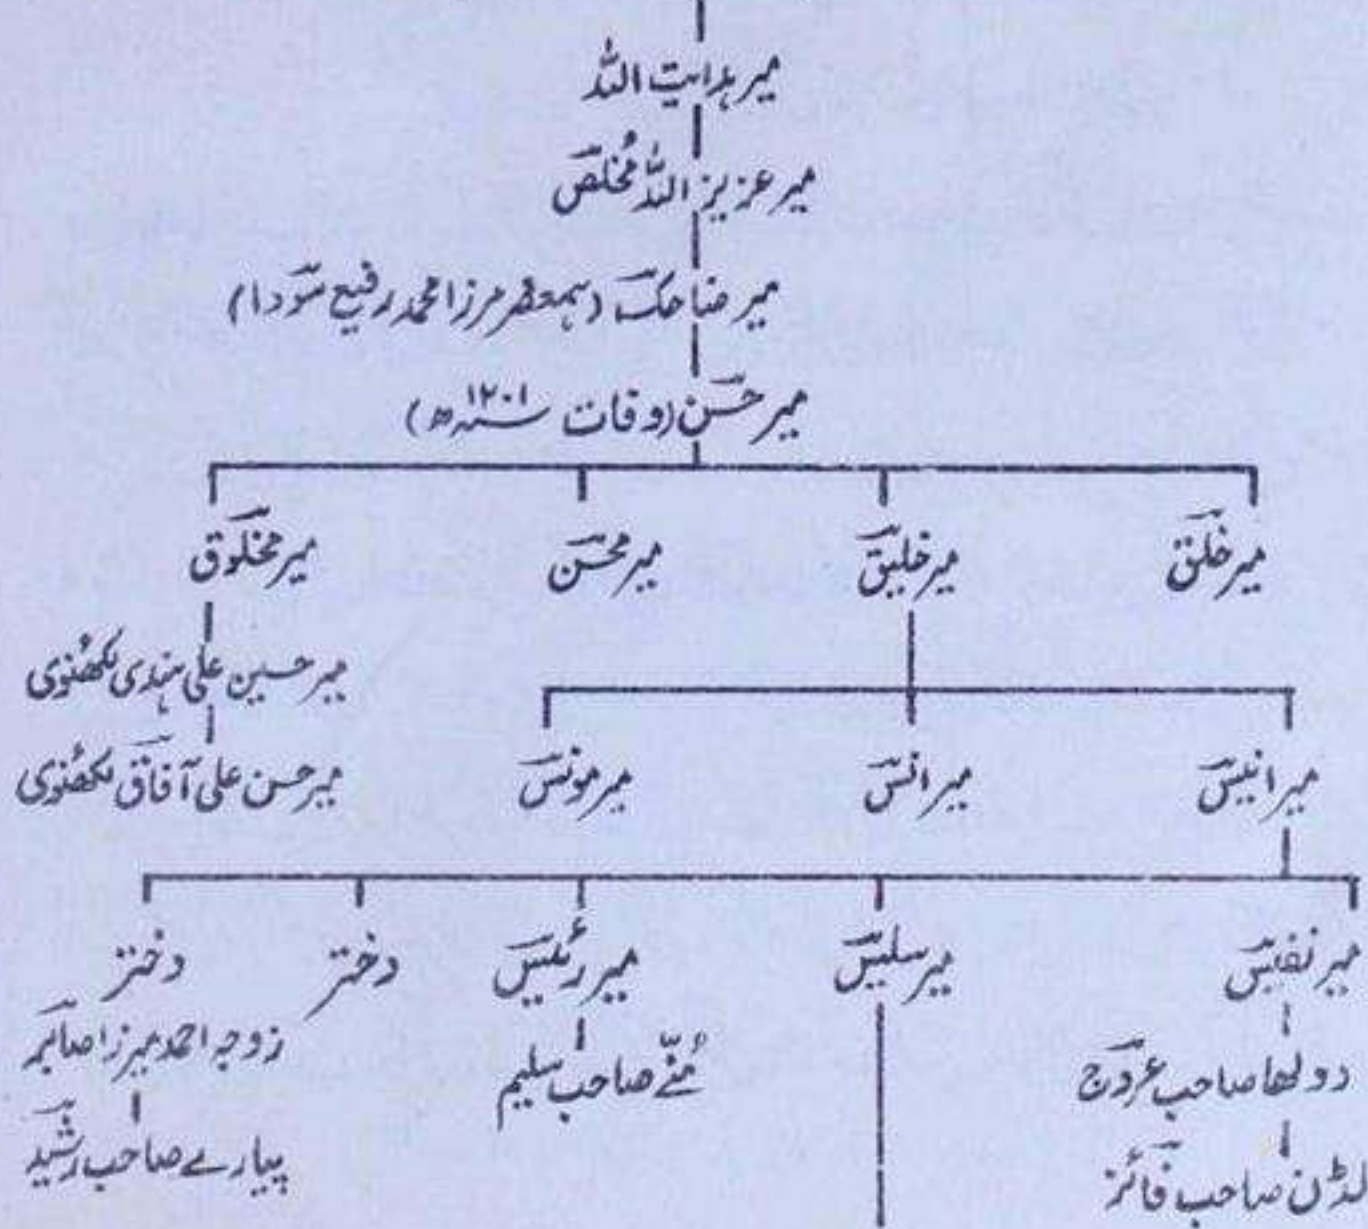 میر ہدایت اللہ
میر عزیز اللہ مُخلص
میر ضاحک (ہمعصر مرزا محمد رفیع سودا)
میر حسن (وفات ۱۲۰۱ھ)
میر خلق میر خلیق میر محسن میر مخلوق
میر حسین علی ہندی لکھنوی
میر حسن علی آفاق لکھنوی
میر انیس میر انس میر مونس
میر نفیس میر سلیس میر رئیس دختر دختر
زوجہ احمد میرزا صابر
دولھا صاحب عروج مُنّے صاحب سلیم
پیارے صاحب رشید
لڈن صاحب فائز